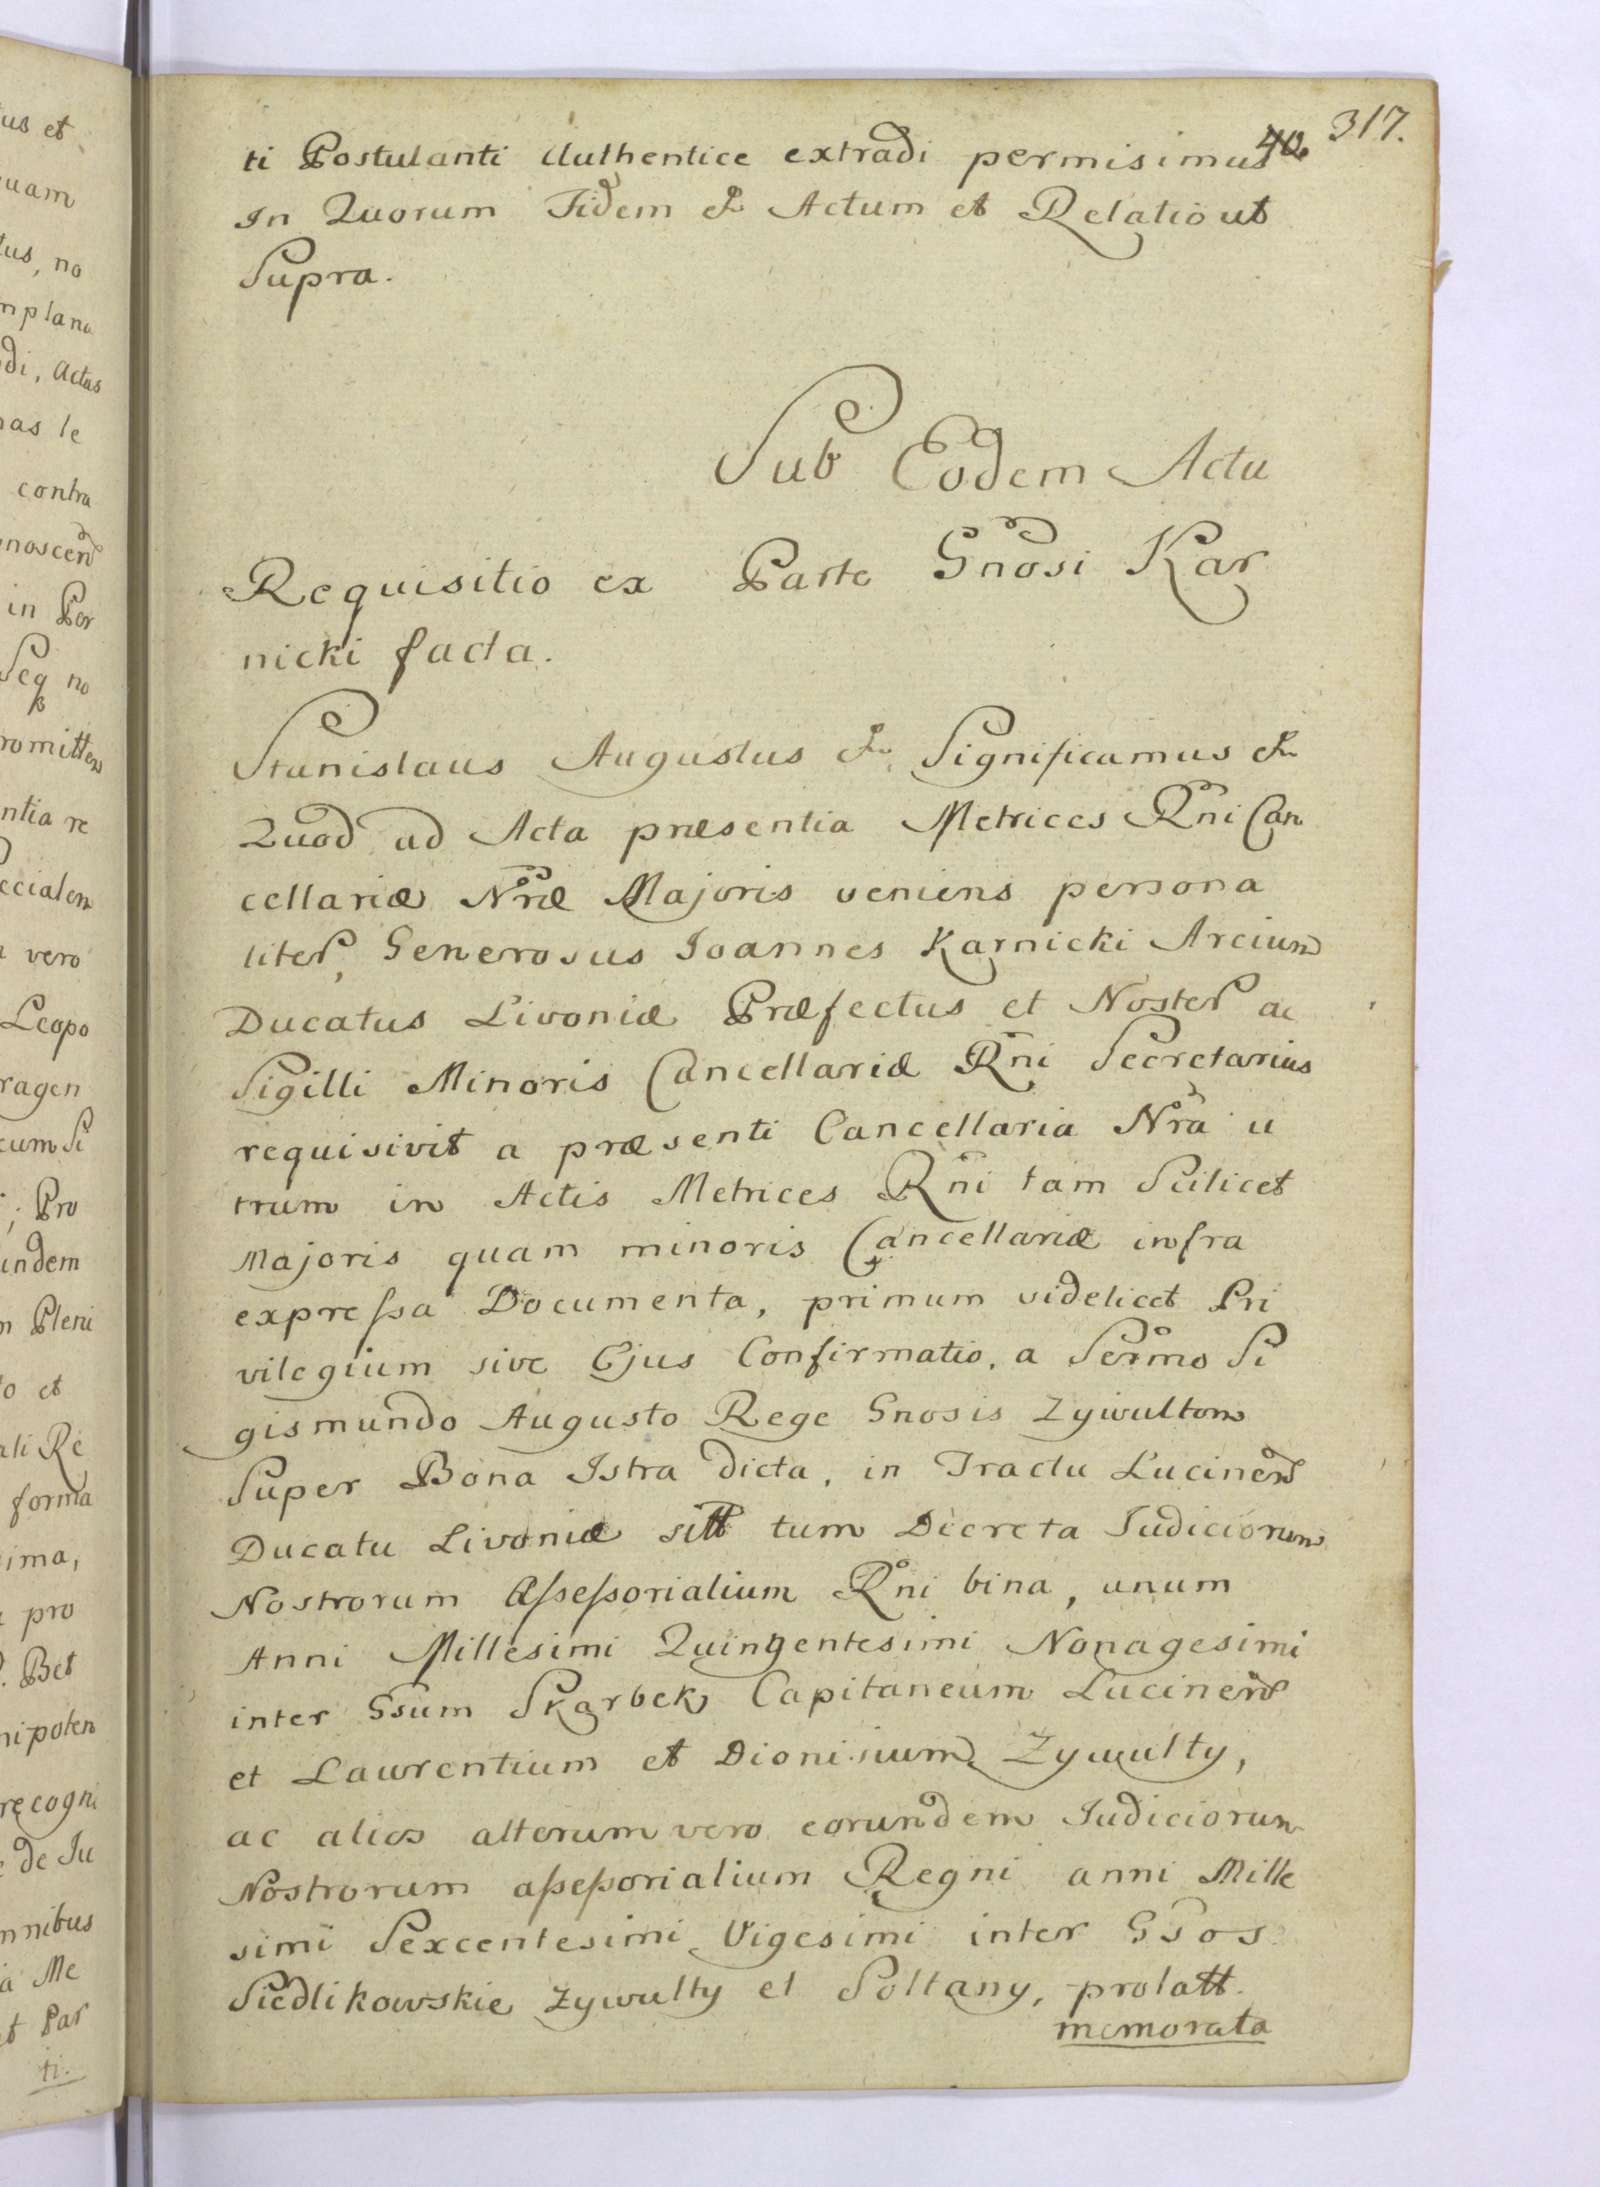 40. 317.
ti Postulanti Authentice extradi permisimus
In Quorum Fidem & Actum et Relatio ut
Supra.
Sub Eodem Actu
Requisitio ex Parte Gnosi Kar
nicki facta.
Stanislaus Augustus & Significamus &
Quod ad Acta præsentia Metrices Rni Can
cellariæ Nræ Majoris veniens persona
liter, Generosus Joannes Karnicki Arcium
Ducatus Livoniæ Præfectus et Noster ac
Sigilli Minoris Cancellariæ Rni Secretarius
requisivit a præsenti Cancellaria Nra u
trum in Actis Metrices Rni tam Scilicet
Majoris quam minoris Cancellariæ infra
expressa Documenta, primum videlicet Pri
vilegium sive Ejus Confirmatio, a Sermo Si
gismundo Augusto Rege Gnosis Zywultom
Super Bona Istra dicta, in Tractu Lucinens
Ducatu Livoniæ sitt tum Decreta Judiciorum
Nostrorum Assessorialium Rni bina, unum
Anni Millesimi Quingentesimi Nonagesimi
inter Gsum Skarbek Capitaneum Lucinens
et Laurentium et Dionisium Zywulty,
ac alios alterum vero eorundem Judiciorum
Nostrorum assessorialium Regni anni Mille
simi Sexcentesimi Vigesimi inter Gsos
Siedlikowskie Zywulty et Soltany, prolatt.
memorata
us et
uam
tus, no
mplana
di, Actus
as le
contra
noscend
in Per
Seq no
romitten
ntia re
ecialem
vero
Leopo
ragen
cum Si
; Pro
undem
m Pleni
to et
ali Re
forma
ima,
pro
Bet
nipoten
recogni
de Ju
mnibus
a Me
et Par
ti.